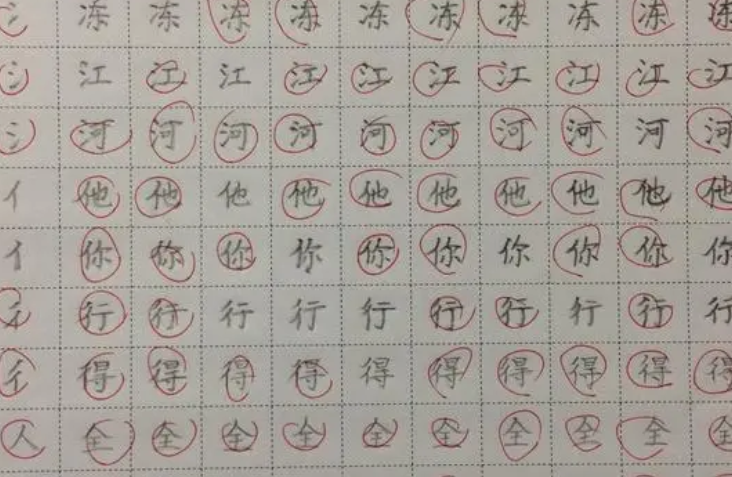 冫 冻 冻 冻 冻 冻 冻 冻 冻 冻 冻
氵 江 江 江 江 江 江 江 江 江 江
氵 河 河 河 河 河 河 河 河 河 河
亻 他 他 他 他 他 他 他 他 他 他
亻 你 你 你 你 你 你 你 你 你 你
彳 行 行 行 行 行 行 行 行 行 行
彳 得 得 得 得 得 得 得 得 得 得
人 全 全 全 全 全 全 全 全 全 全